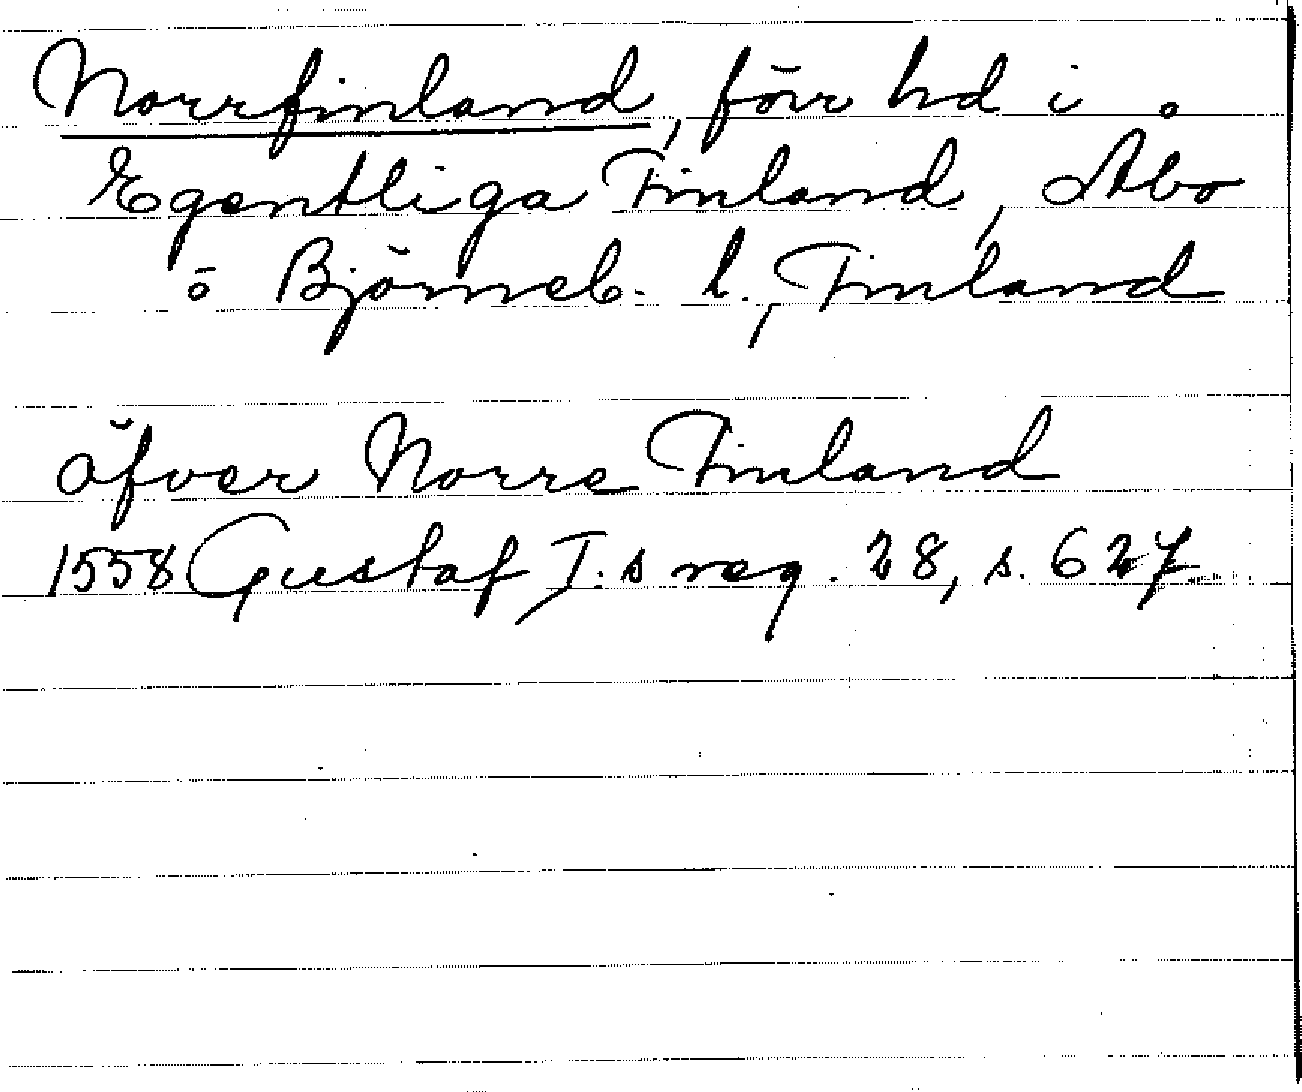 Norrfinland, förr hd i
Egentliga Finland, Åbo
o Björneb. l., Finland
öfver Norre Finland
1558 Gustaf I:s reg. 28, s. 627